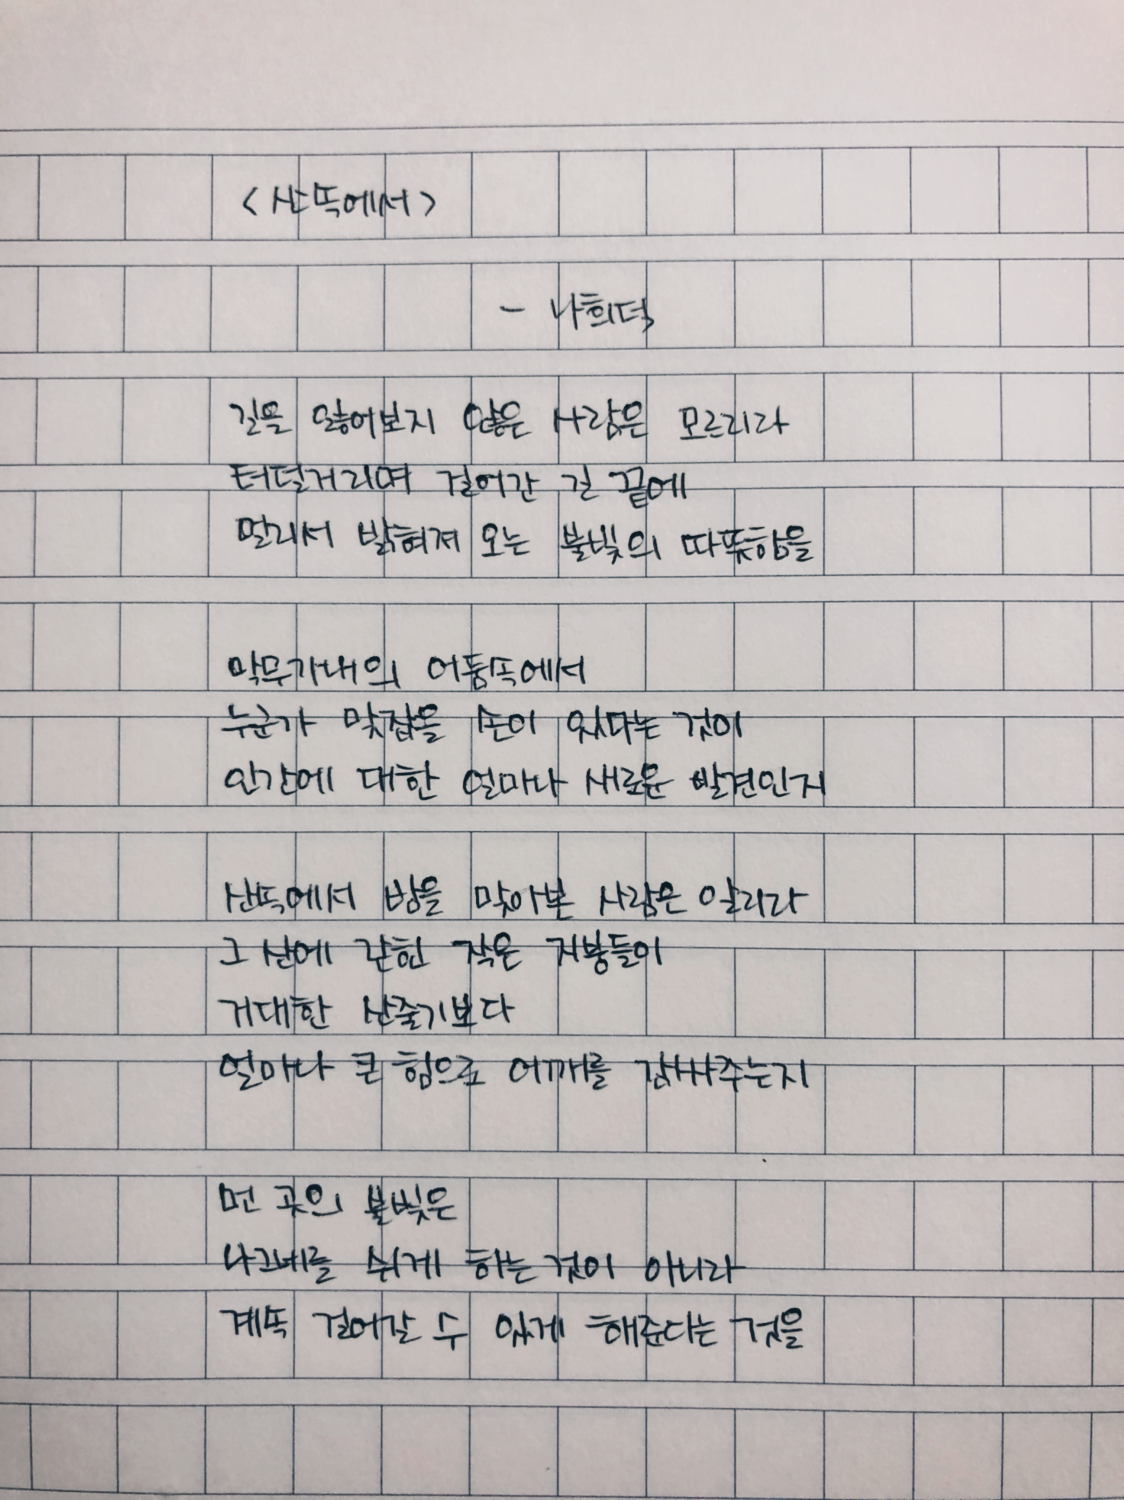 <산속에서>
- 나희덕
길을 잃어보지 않은 사람은 모르리라
터덜거리며 걸어간 길 끝에
멀리서 밝혀져 오는 불빛의 따뜻함을
막무가내의 어둠속에서
누군가 맞잡을 손이 있다는 것이
인간에 대한 얼마나 새로운 발견인지
산속에서 밤을 맞아본 사람은 알리라
그 산에 갇힌 작은 지붕들이
거대한 산줄기보다
얼마나 큰 힘으로 어깨를 감싸주는지
먼 곳의 불빛은
나그네를 쉬게 하는 것이 아니라
계속 걸어갈 수 있게 해준다는 것을